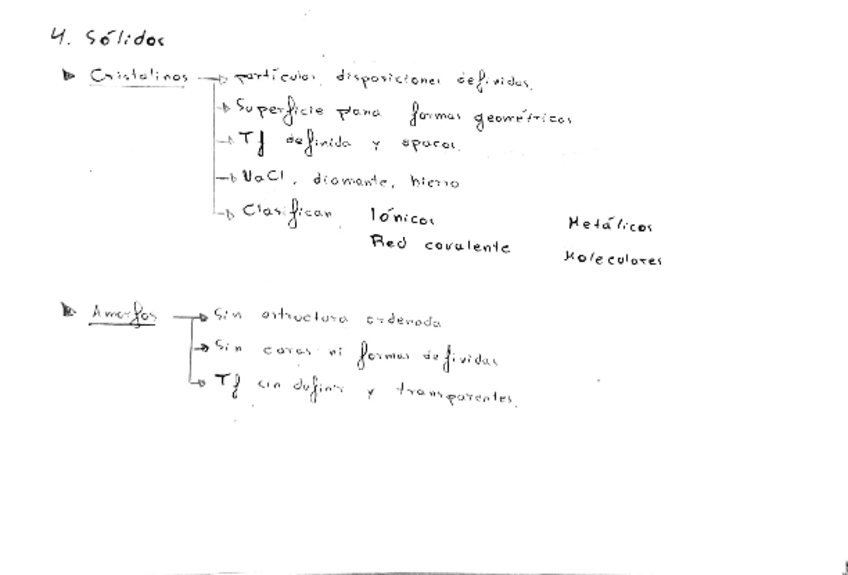 4. Sólidos
Cristalinos → partículas disposiciones definidas.
→ Superficie plana formas geométricas
→ Tf definida y opacos.
→ NaCl, diamante, hierro
→ Clasifican Iónicos Metálicos
Red covalente Moleculares
Amorfos → Sin estructura ordenada
→ Sin caras ni formas definidas
→ Tf sin definir y transparentes.